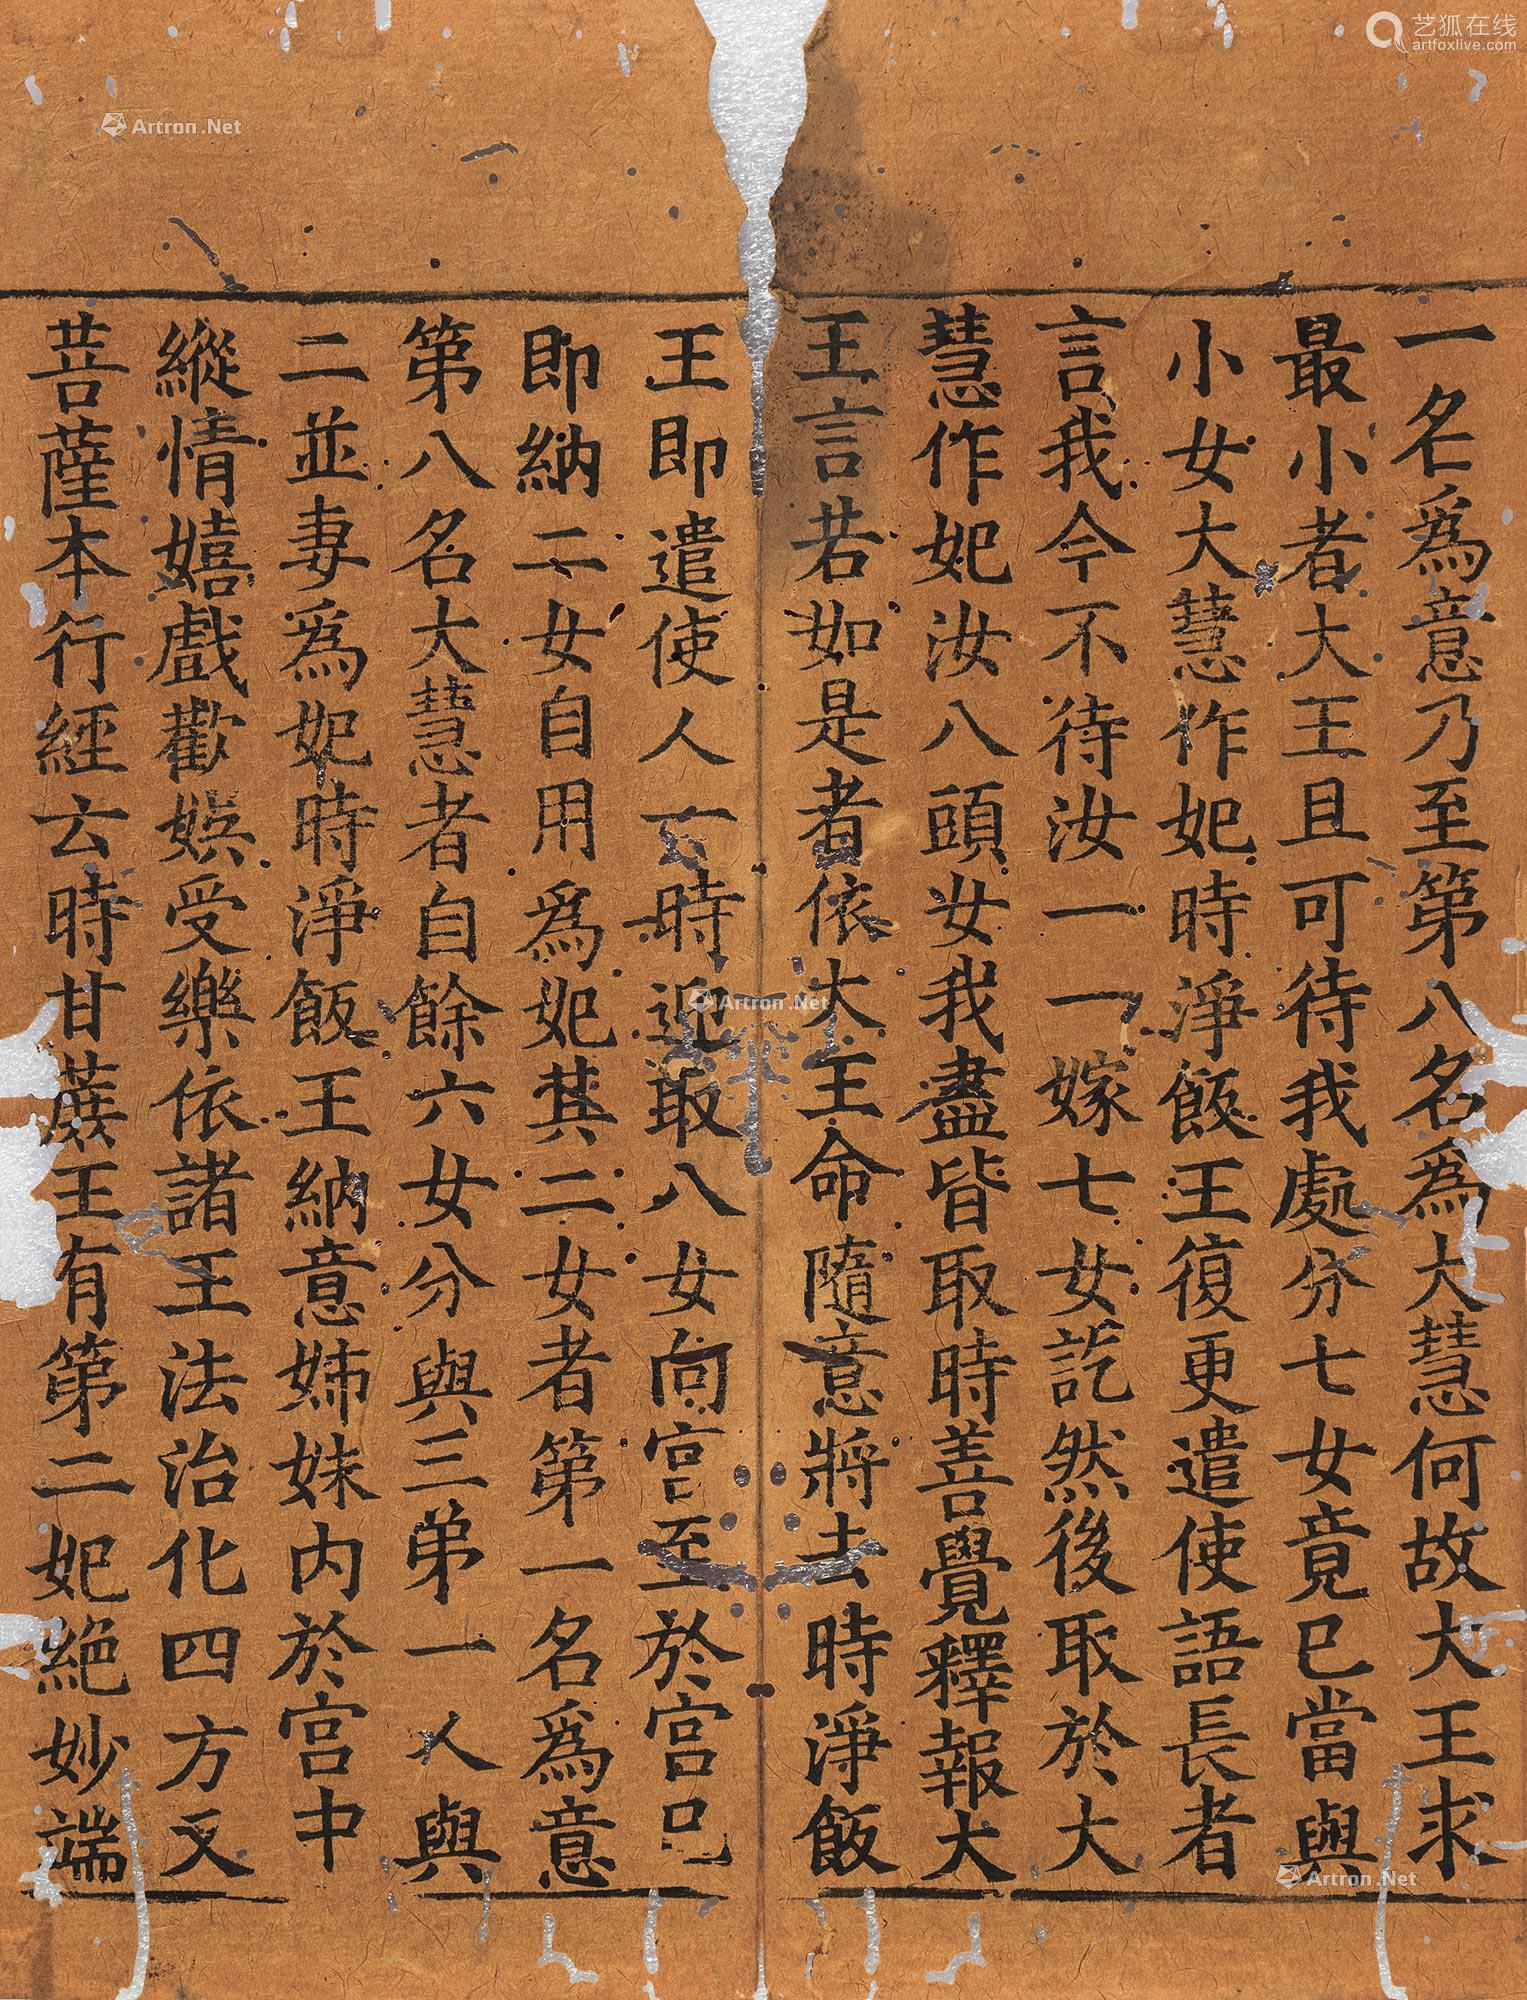 一名爲意乃至第八名爲大慧何故大王求
最小者大王且可待我處分七女竟已當與
小女大慧作妃時淨飯王復更遣使語長者
言我今不待汝一一嫁七女訖然後取於大
慧作妃汝八頭女我盡皆取時善覺釋報大
王言若如是者依大王命隨意將去時淨飯
王即遣使人一時迎取八女向宮至於宮已
即納二女自用爲妃其二女者第一名爲意
第八名大慧者自餘六女分與三弟一人與
二並妻爲妃時淨飯王納意姊妹內於宮中
縱情嬉戲歡娛受樂依諸王法治化四方又
菩薩本行經云時甘蔗王有第二妃絕妙端
艺狐在线
artfoxlive.com
Artron.Net
Artron.Net
Artron.Net